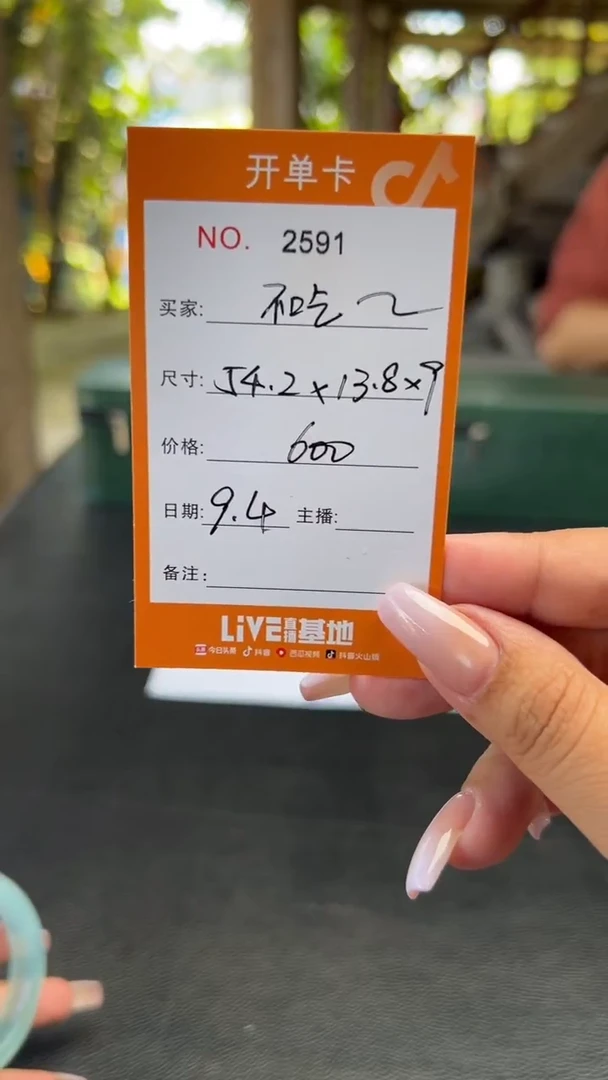 开单卡
NO. 2591
买家:
尺寸: 54.2×13.8×9
价格: 600
日期: 9.4 主播:
备注:
LiVE直播基地
今日头条 抖音 西瓜视频 抖音火山版